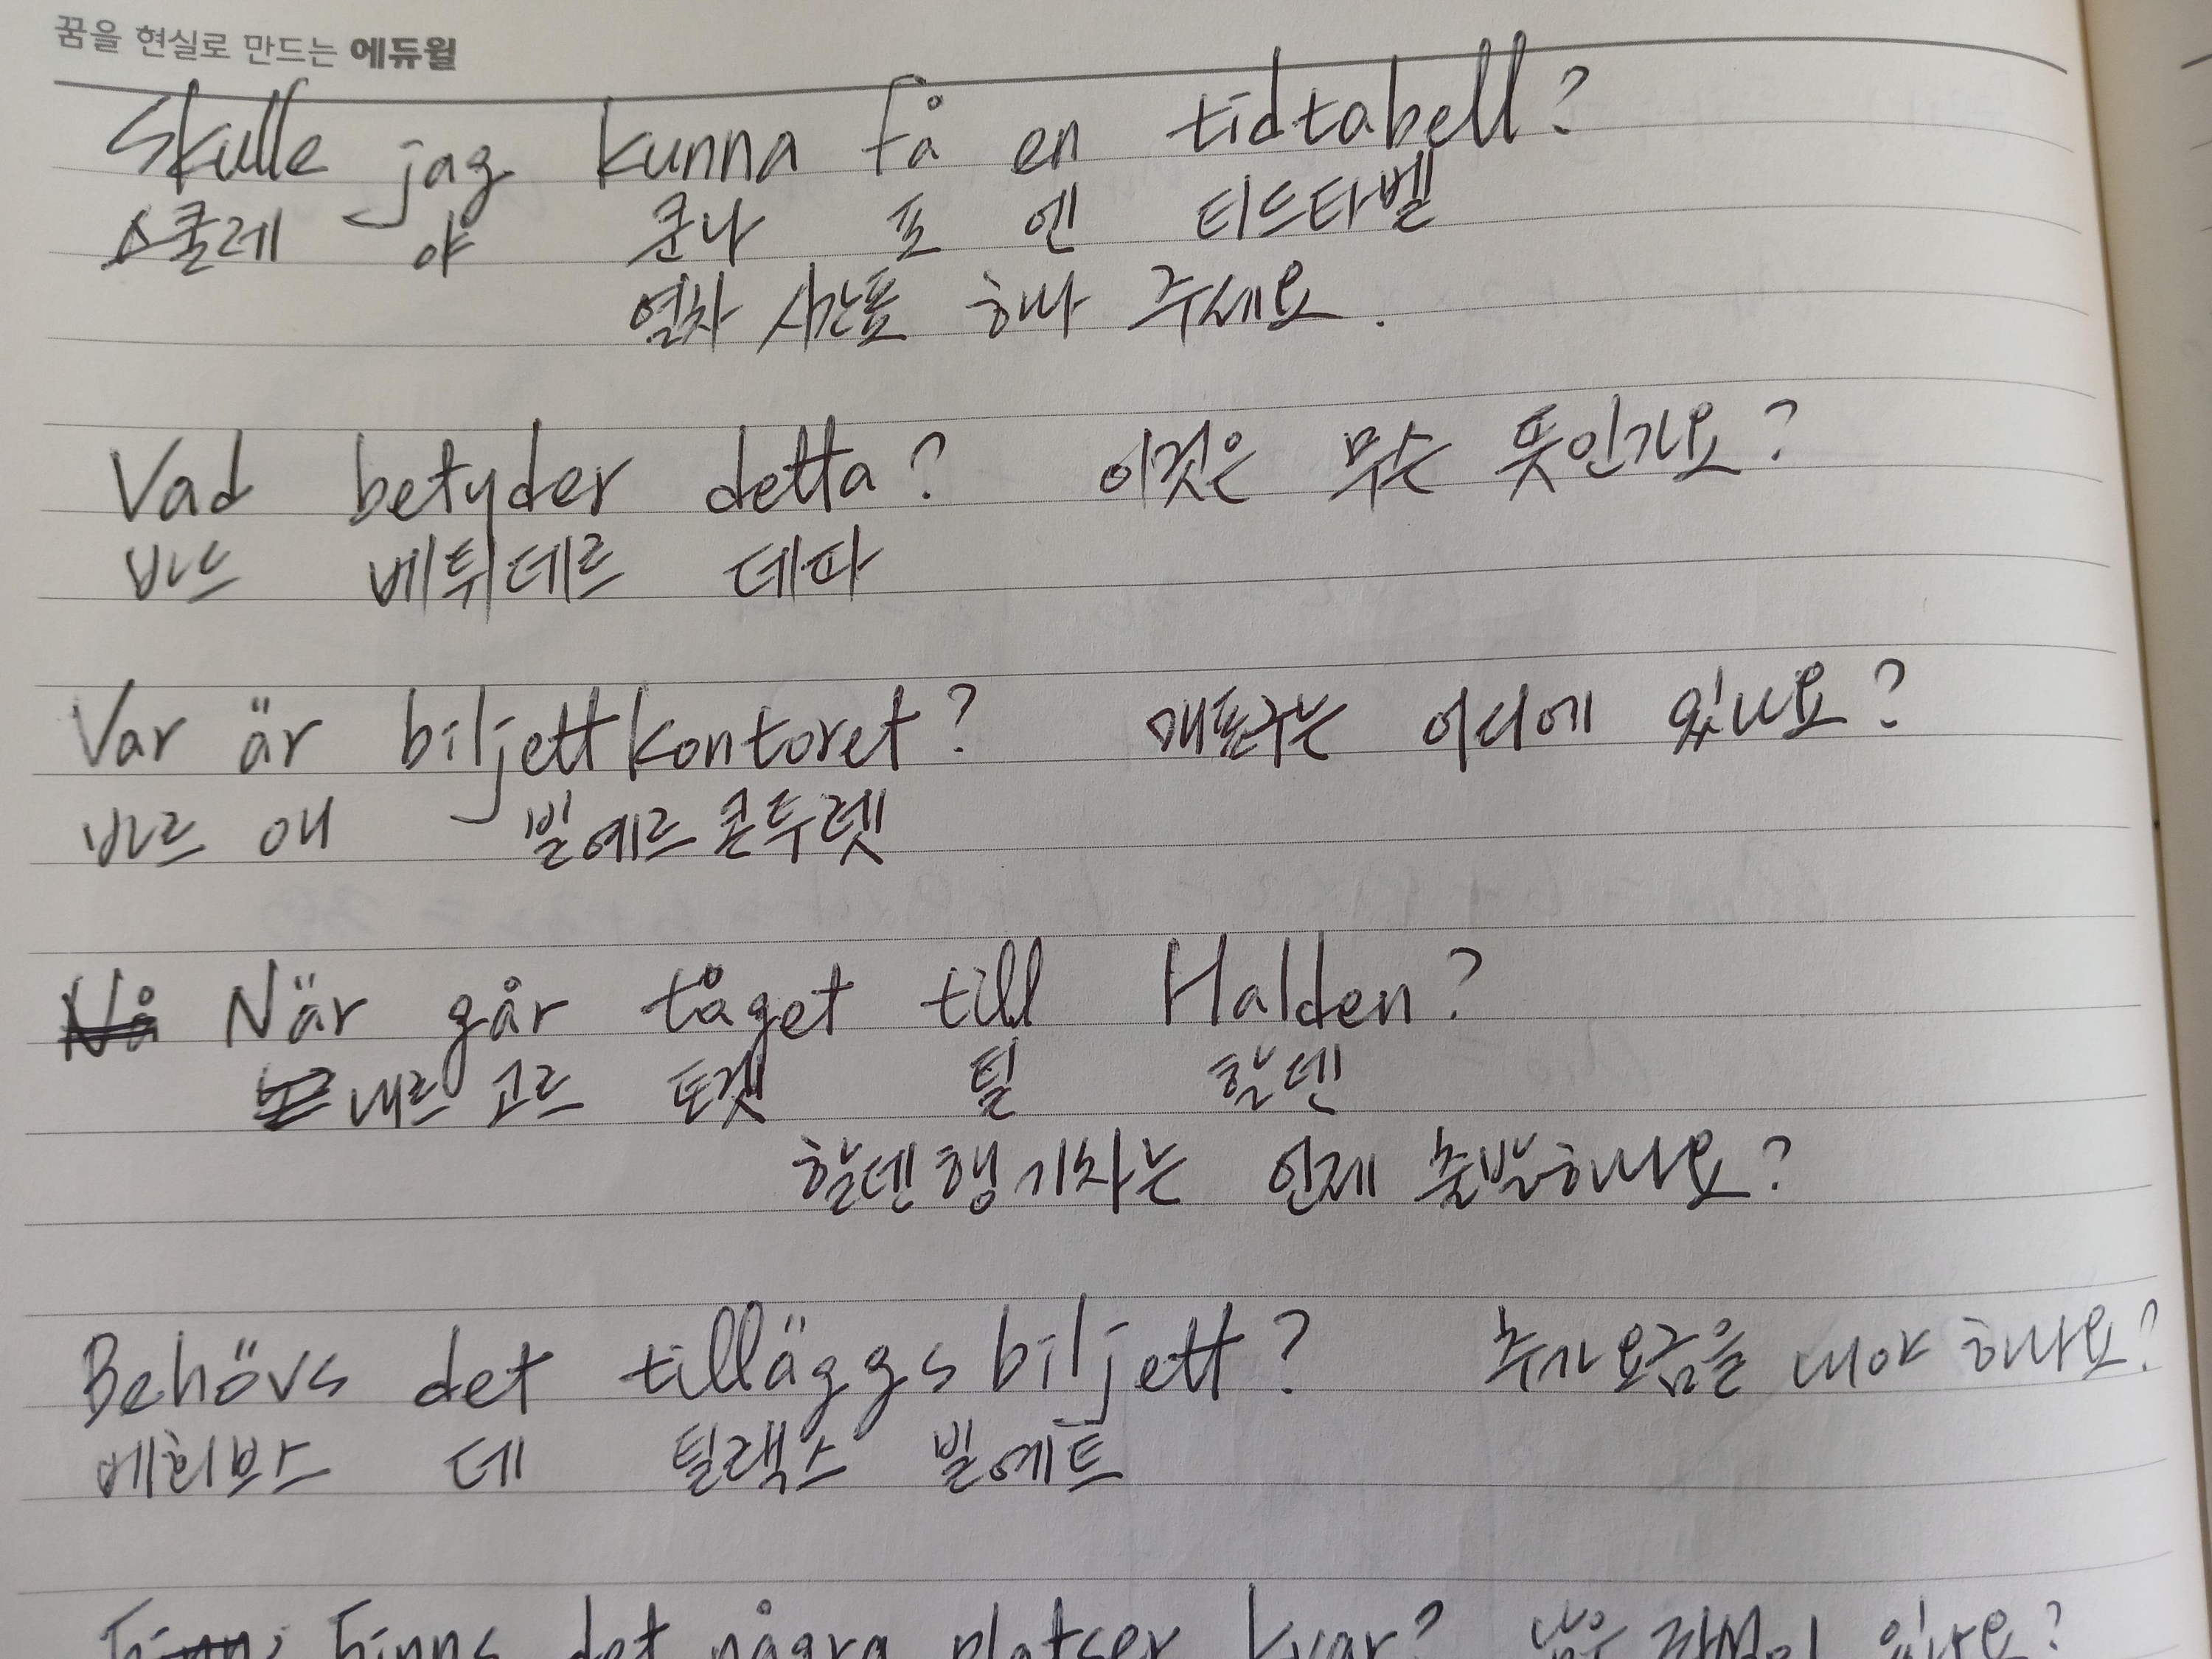 꿈을 현실로 만드는 에듀윌
Skulle jag kunna få en tidtabell?
스쿨레 야 쿤나 포 엔 티드타벨
열차 시간표 하나 주세요.
Vad betyder detta? 이것은 무슨 뜻인가요?
바드 베튀데르 데따
Var är biljettkontoret? 매표구는 어디에 있나요?
바르 애 빌예르콘투렛
När går tåget till Halden?
내르 고르 토겟 틸 할덴
할덴행 기차는 언제 출발하나요?
Behövs det tilläggsbiljett? 추가 요금을 내야 하나요?
데 틸랙스 빌예트
Finns det några platser kvar? 남은 좌석이 있나요?